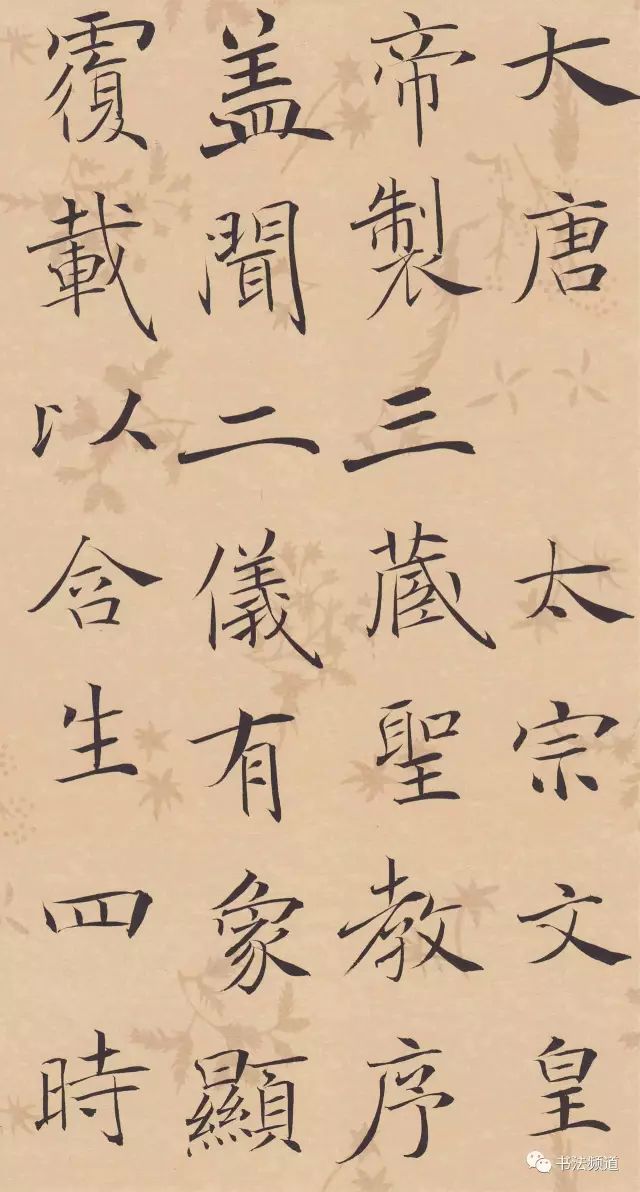 大唐 太宗文皇
帝製三蔵聖教序
盖聞二儀有象顯
覆載以含生四時
书法频道